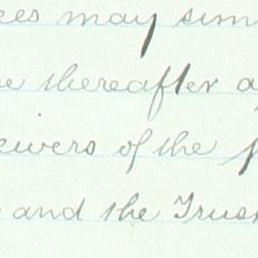 ees may sim
e thereafter a
ewers of the p
and the Trus